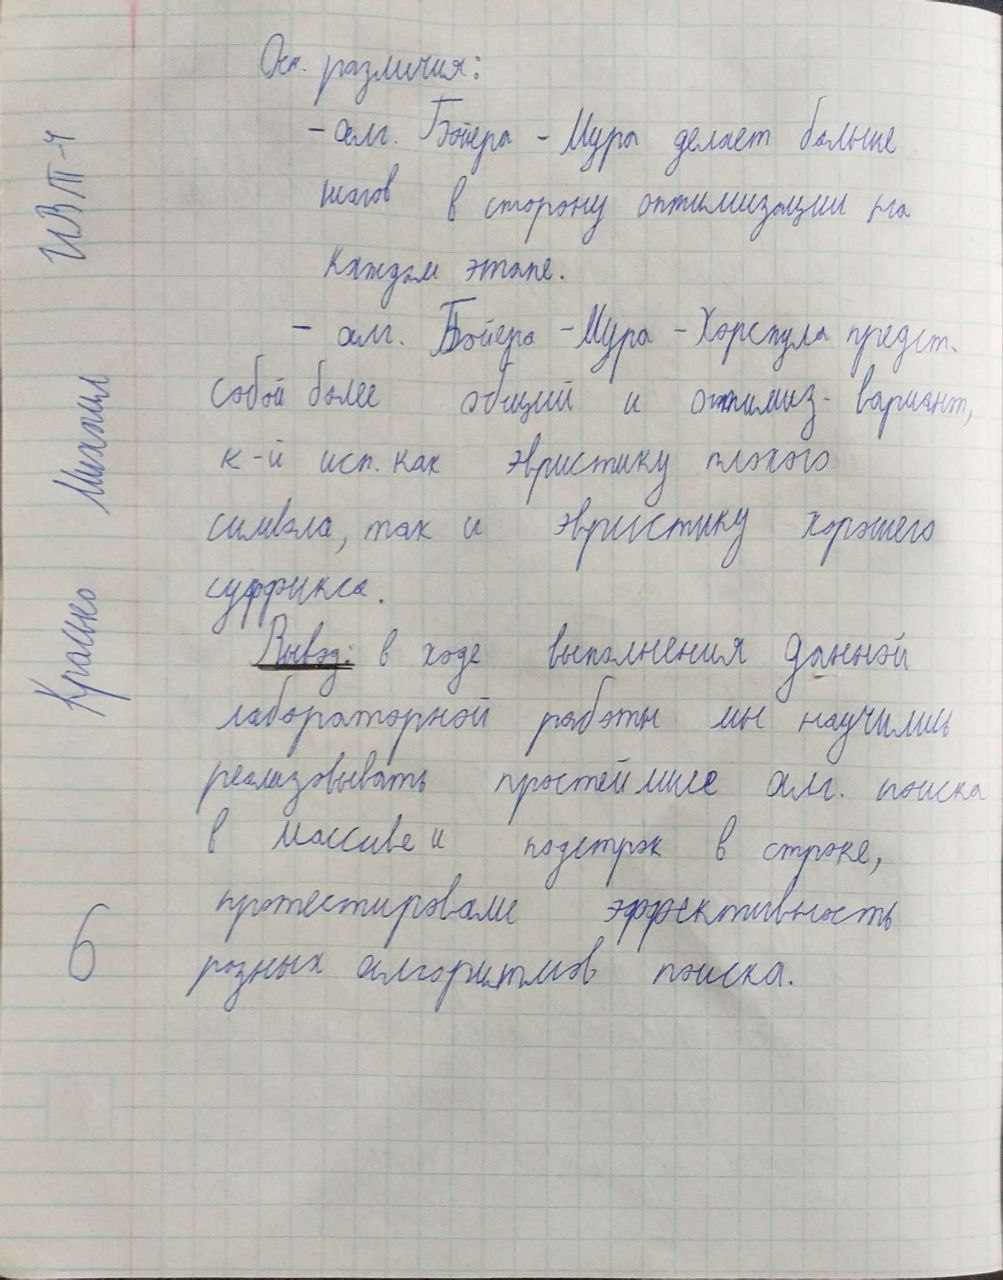 Осн. различия:
- алг. Бойера - Мура делает больше
шагов в сторону оптимизации на
каждом этапе.
- алг. Бойера - Мура - Хорспула предст.
собой более общий и оптимиз. вариант,
к-й исп. как эвристику плохого
символа, так и эвристику хорошего
суффикса.
Вывод: в ходе выполнения данной
лабораторной работы мы научились
реализовывать простейшие алг. поиска
в массиве и подстрок в строке,
протестировали эффективность
разных алгоритмов поиска.
Кралько Михаил ИВТ-4
6